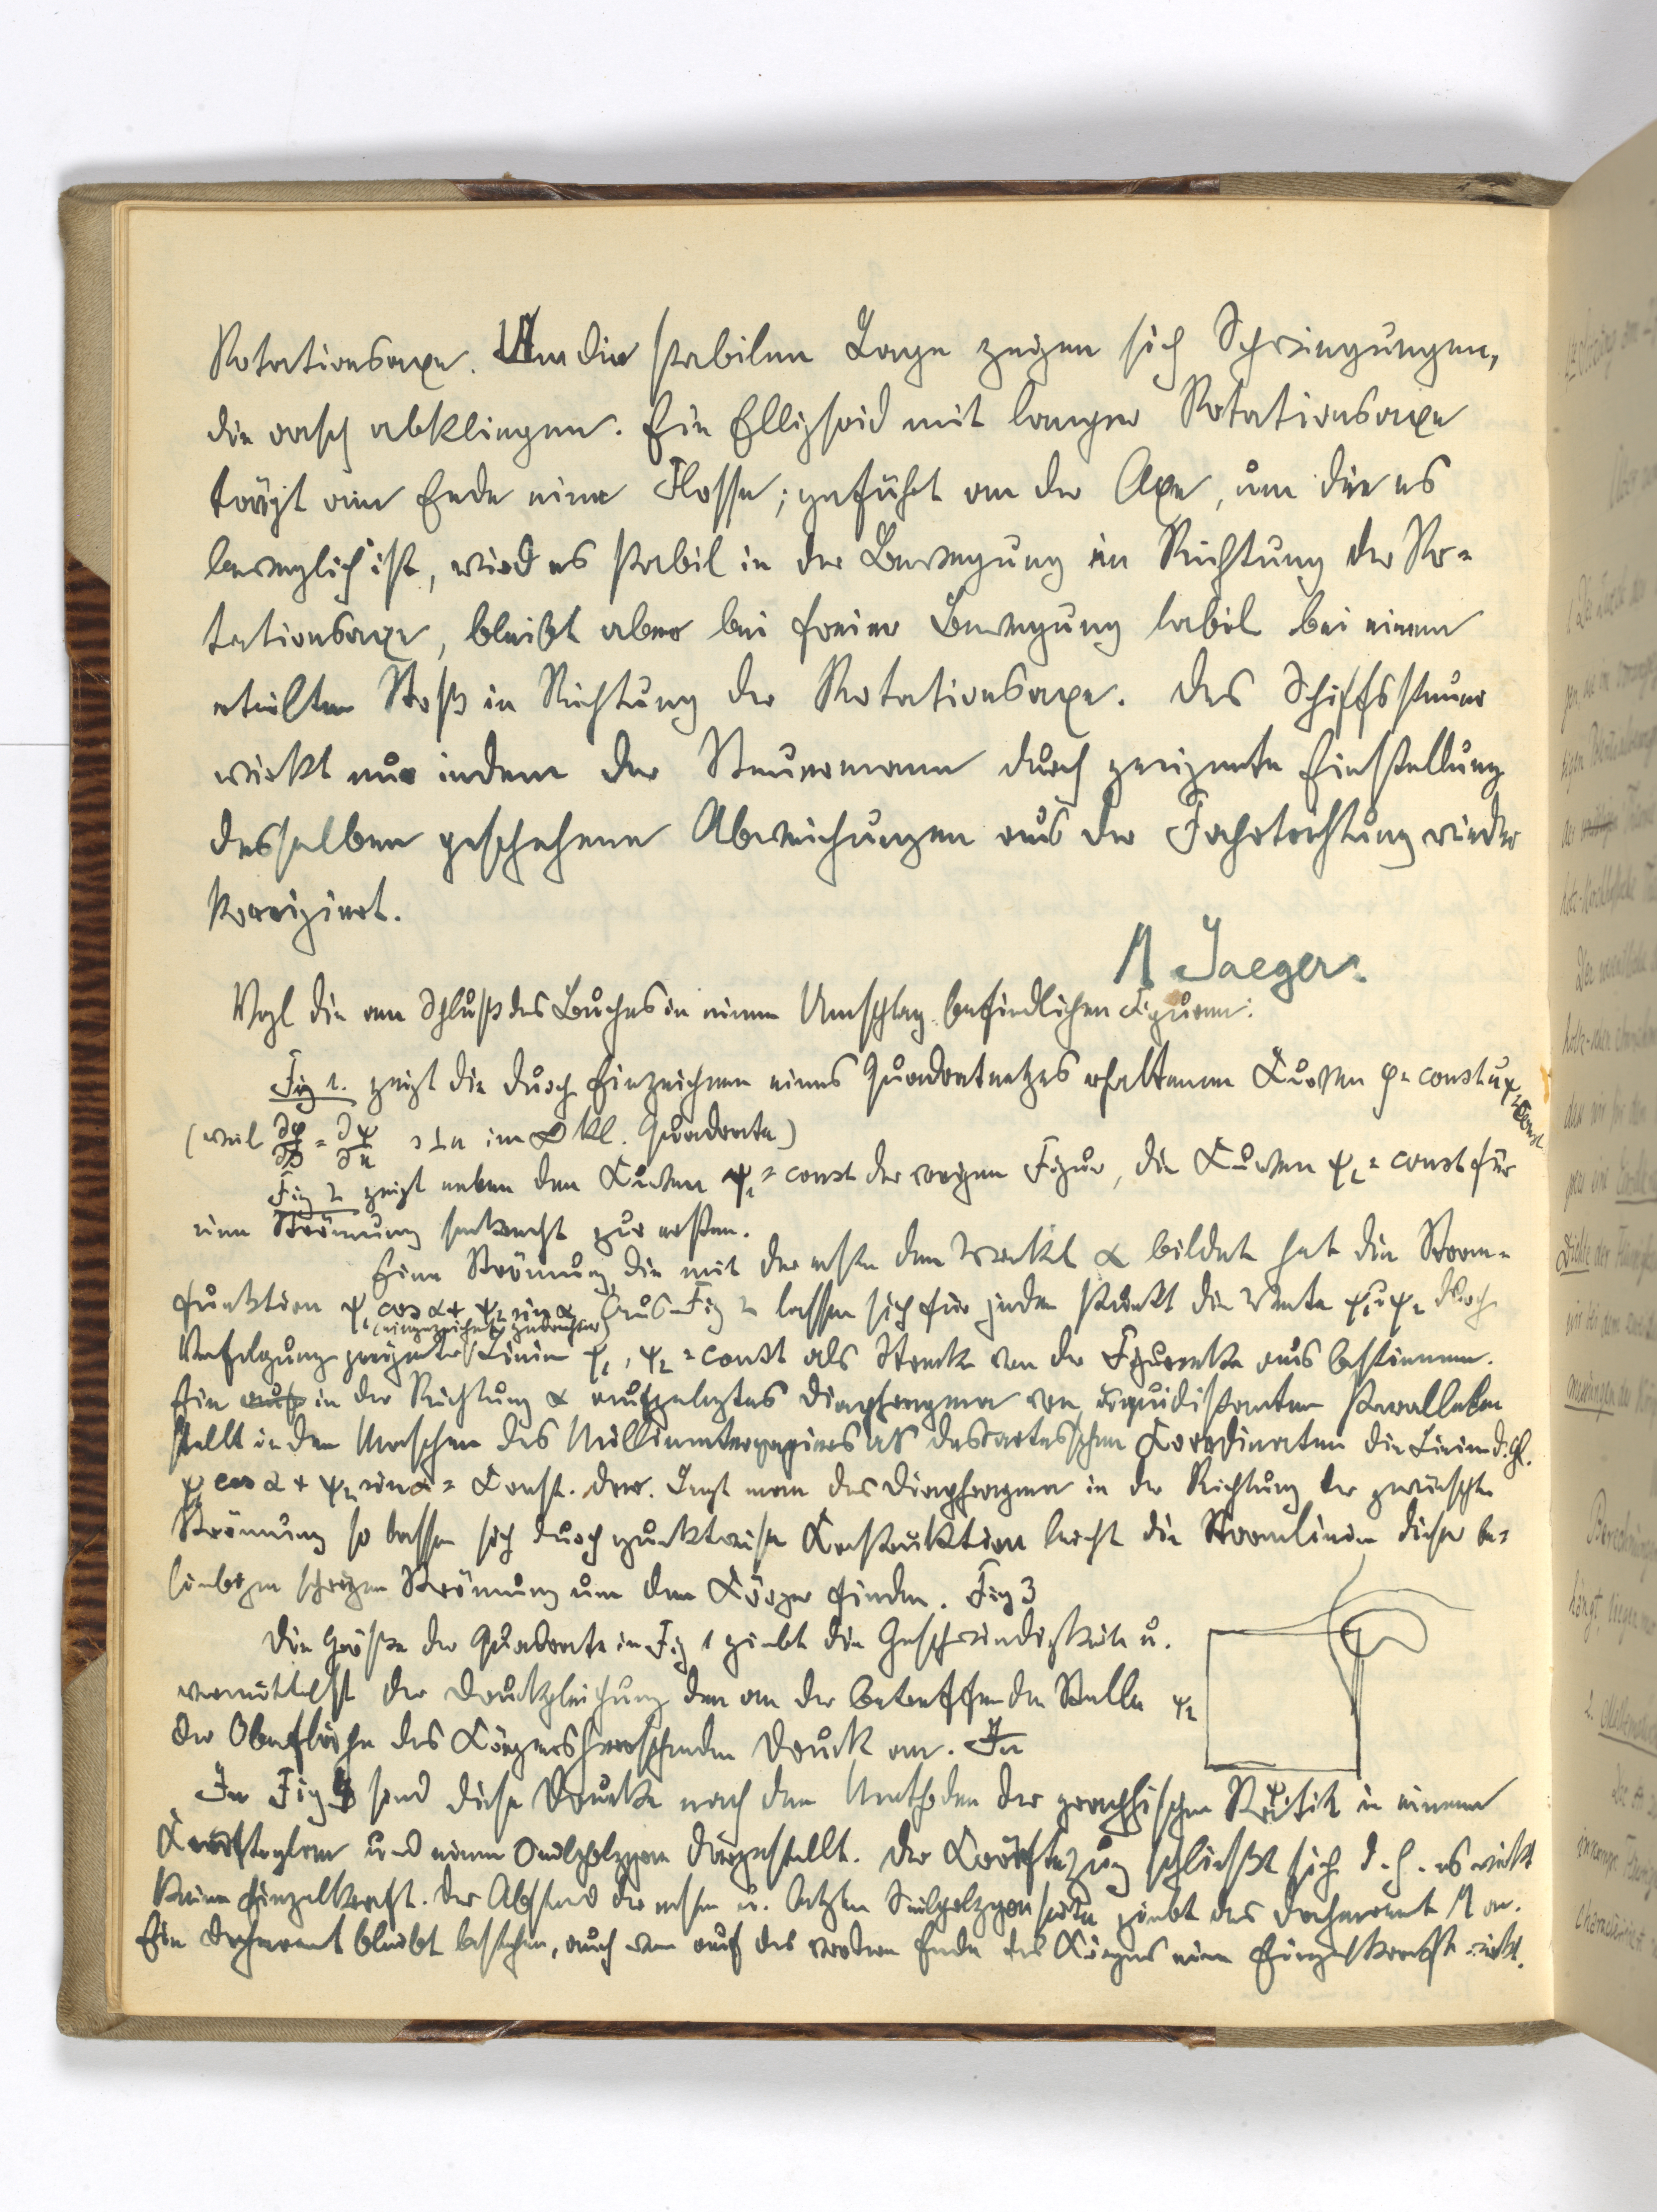 Rotationsaxe. Um die stabilen Lage zeigen sich Schwingungen,
die rasch abklingen. Ein Ellipsoid mit langer Rotationsaxe
trägt am Ende eine Flosse; geführt an der Axe, um die es
beweglich ist, wird es stabil in der Bewegung in Richtung der Ro-
tationsaxe, bleibt aber bei freier Bewegung labil bei einem
erteilten Stoß in Richtung der Rotationsaxe. Das Schiffssteuer
wirkt nur indem der Steuermann durch geeignete Einstellung
desselben geschehene Abweichungen aus der Fahrtrichtung wieder
korrigiert.
M Jaeger.
Vgl die am Schluß des Buches in einem Umschlag befindlichen Figuren:
Fig 1. zeigt die durch Einzeichnen eines Quadratnetzes erhaltenen Kurven φ = const u ψ = const
(weil ∂φ/∂s = ∂ψ/∂n s⊥n im ∞ kl. Quadrate)
Fig 2 zeigt neben den Kurven ψ₁ = const der vorigen Figur, die Kurven ψ₂ = const für
eine Strömung senkrecht zur ersten.
Eine Strömung, die mit der ersten den Winkel α bildet hat die Strom-
funktion ψ₁ cos α + ψ₂ sin α. Aus Fig 2 lassen sich für jeden Punkt die Werte ψ₁ u ψ₂ durch
Verfolgung geeigneter (eingezeichnet gedachter) Linien ψ₁, ψ₂ = const als Strecke von der Figurenecke aus bestimmen.
Ein auf in der Richtung α aufgelegtes Diaphragma von äquidistanten Parallelen
stellt in den Maschen des Millimeterpapieres als descartesschen Koordinaten die Linien d. Gl.
ψ₁ cos α + ψ₂ sin α = Const. dar. Legt man das Diaphragma in der Richtung der gewünschten
Strömung so lassen sich durch punktweise Konstruktion leicht die Stromlinien dieser be-
liebigen schrägen Strömung um den Körper finden. Fig 3
Die Größe der Quadrate in Fig 1 giebt die Geschwindigkeit u.
vermittelst der Druckgleichung den an der betreffenden Stelle
der Oberfläche des Körpers herrschenden Druck an. In
ψ₂
ψ₁
In Fig 4 sind diese Drucke nach den Methoden der graphischen Statik in einem
Kräfteplan und einem Seilpolygon dargestellt. Der Kräftezug schließt sich d. h. es wirkt
keine Einzelkraft. Der Abstand der ersten u. letzten Seilpolygonseite giebt das Drehmoment M an.
Ein Drehmoment bleibt bestehen, auch wenn auf das vordere Ende des Körpers eine Einzelkraft wirkt.